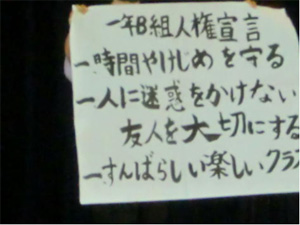 一年B組人権宣言
一時間やけじめを守る
一人に迷惑をかけない
友人を大切にする
一すんばらしい楽しいクラス